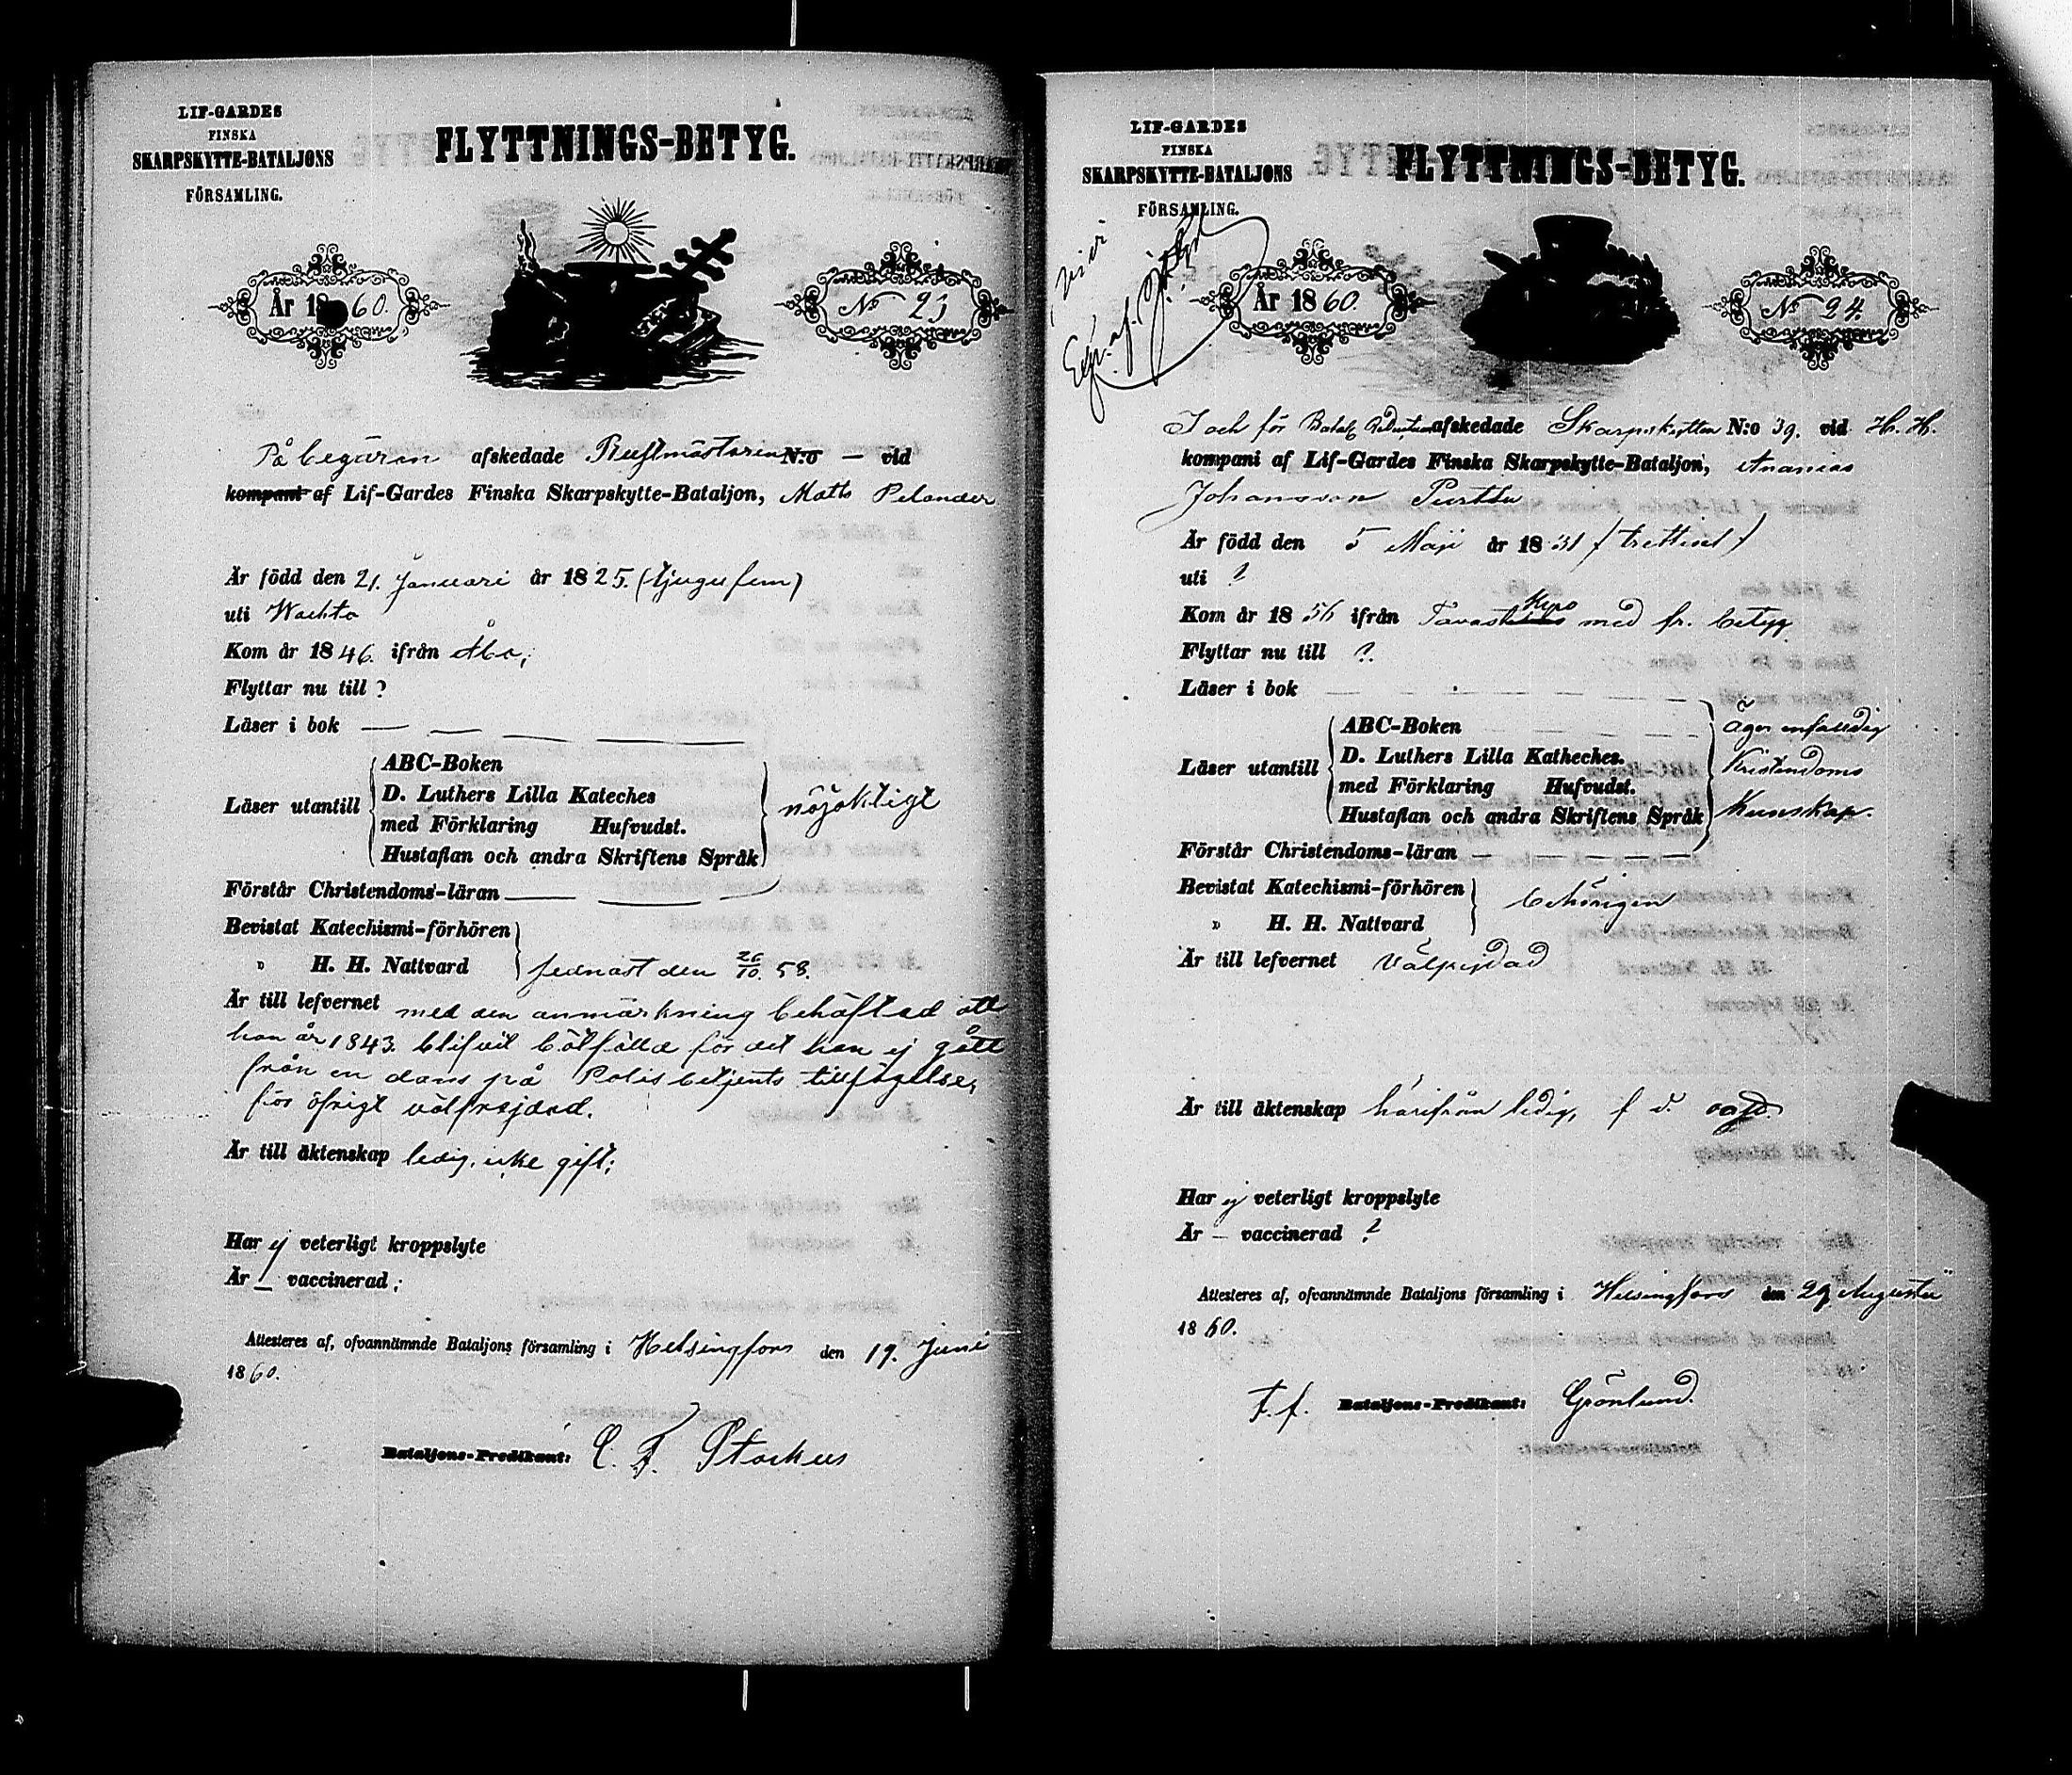 LIF-GARDES
FINSKA
SKARPSKYTTE-BATALJONS
FÖRSAMLING.
FLYTTNINGS-BETYG.
År 1860.
No 23
På begäran afskedade Rustmästaren N:o — vid
kompani af Lif-Gardes Finska Skarpskytte-Bataljon, Matts Pelander
Är född den 21. Januari år 1825. (tjugufem)
uti Wachto
Kom år 1846. ifrån Åbo;
Flyttar nu till ?
Läser i bok — — — —
Läser utantill
ABC-Boken
D. Luthers Lilla Kateches
med Förklaring Hufvudst.
Hustaflan och andra Skriftens Språk
nöjaktigt
Förstår Christendoms-läran — — —
Bevistat Katechismi-förhören
" H. H. Nattvard
sednast den 26/10. 58.
Är till lefvernet med den anmärkning behäftad att
han år 1843. blifvit bötfälld för det han ej gått
från en dans på Polisbetjents tillsägelse;
för öfrigt välfrejdad.
Är till äktenskap ledig, icke gift;
Har ej veterligt kroppslyte
Är — vaccinerad;
Attesteres af, ofvannämnde Bataljons församling i Helsingfors den 19. Juni
1860.
Bataljons-Predikant: C. F. Stockus
LIF-GARDES
FINSKA
SKARPSKYTTE-BATALJONS
FÖRSAMLING.
FLYTTNINGS-BETYG.
År 1860.
No 24.
I och för Batalj. afskedade Skarpskytten N:o 39. vid
kompani af Lif-Gardes Finska Skarpskytte-Bataljon, Ananias
Johansson Purttu
Är född den 5 Maji år 1831 (trettiett)
uti ?
Kom år 1856 ifrån Tavastkyro med fr. betyg
Flyttar nu till ?.
Läser i bok — — — —
Läser utantill
ABC-Boken
D. Luthers Lilla Katheches.
med Förklaring Hufvudst.
Hustaflan och andra Skriftens Språk
äger enfaldig
Kristendoms
Kunskap.
Förstår Christendoms-läran — — — — —
Bevistat Katechismi-förhören
" H. H. Nattvard
behörigen
Är till lefvernet välfrejdad
Är till äktenskap härifrån ledig,
Har ej veterligt kroppslyte
Är — vaccinerad ?
Attesteres af, ofvannämnde Bataljons församling i Helsingfors den 29 Augusti
1860.
T. f. Bataljons-Predikant: Grönlund.